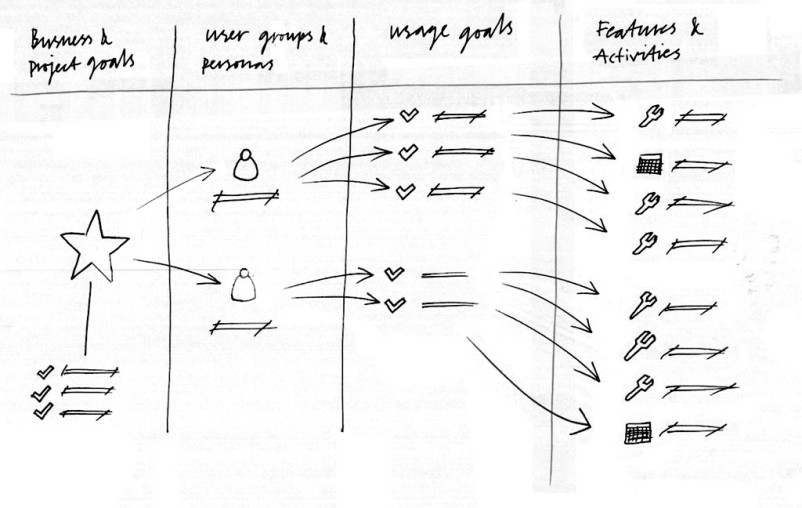 Business &
Project goals
User groups &
Personas
Usage goals
Features &
Activities